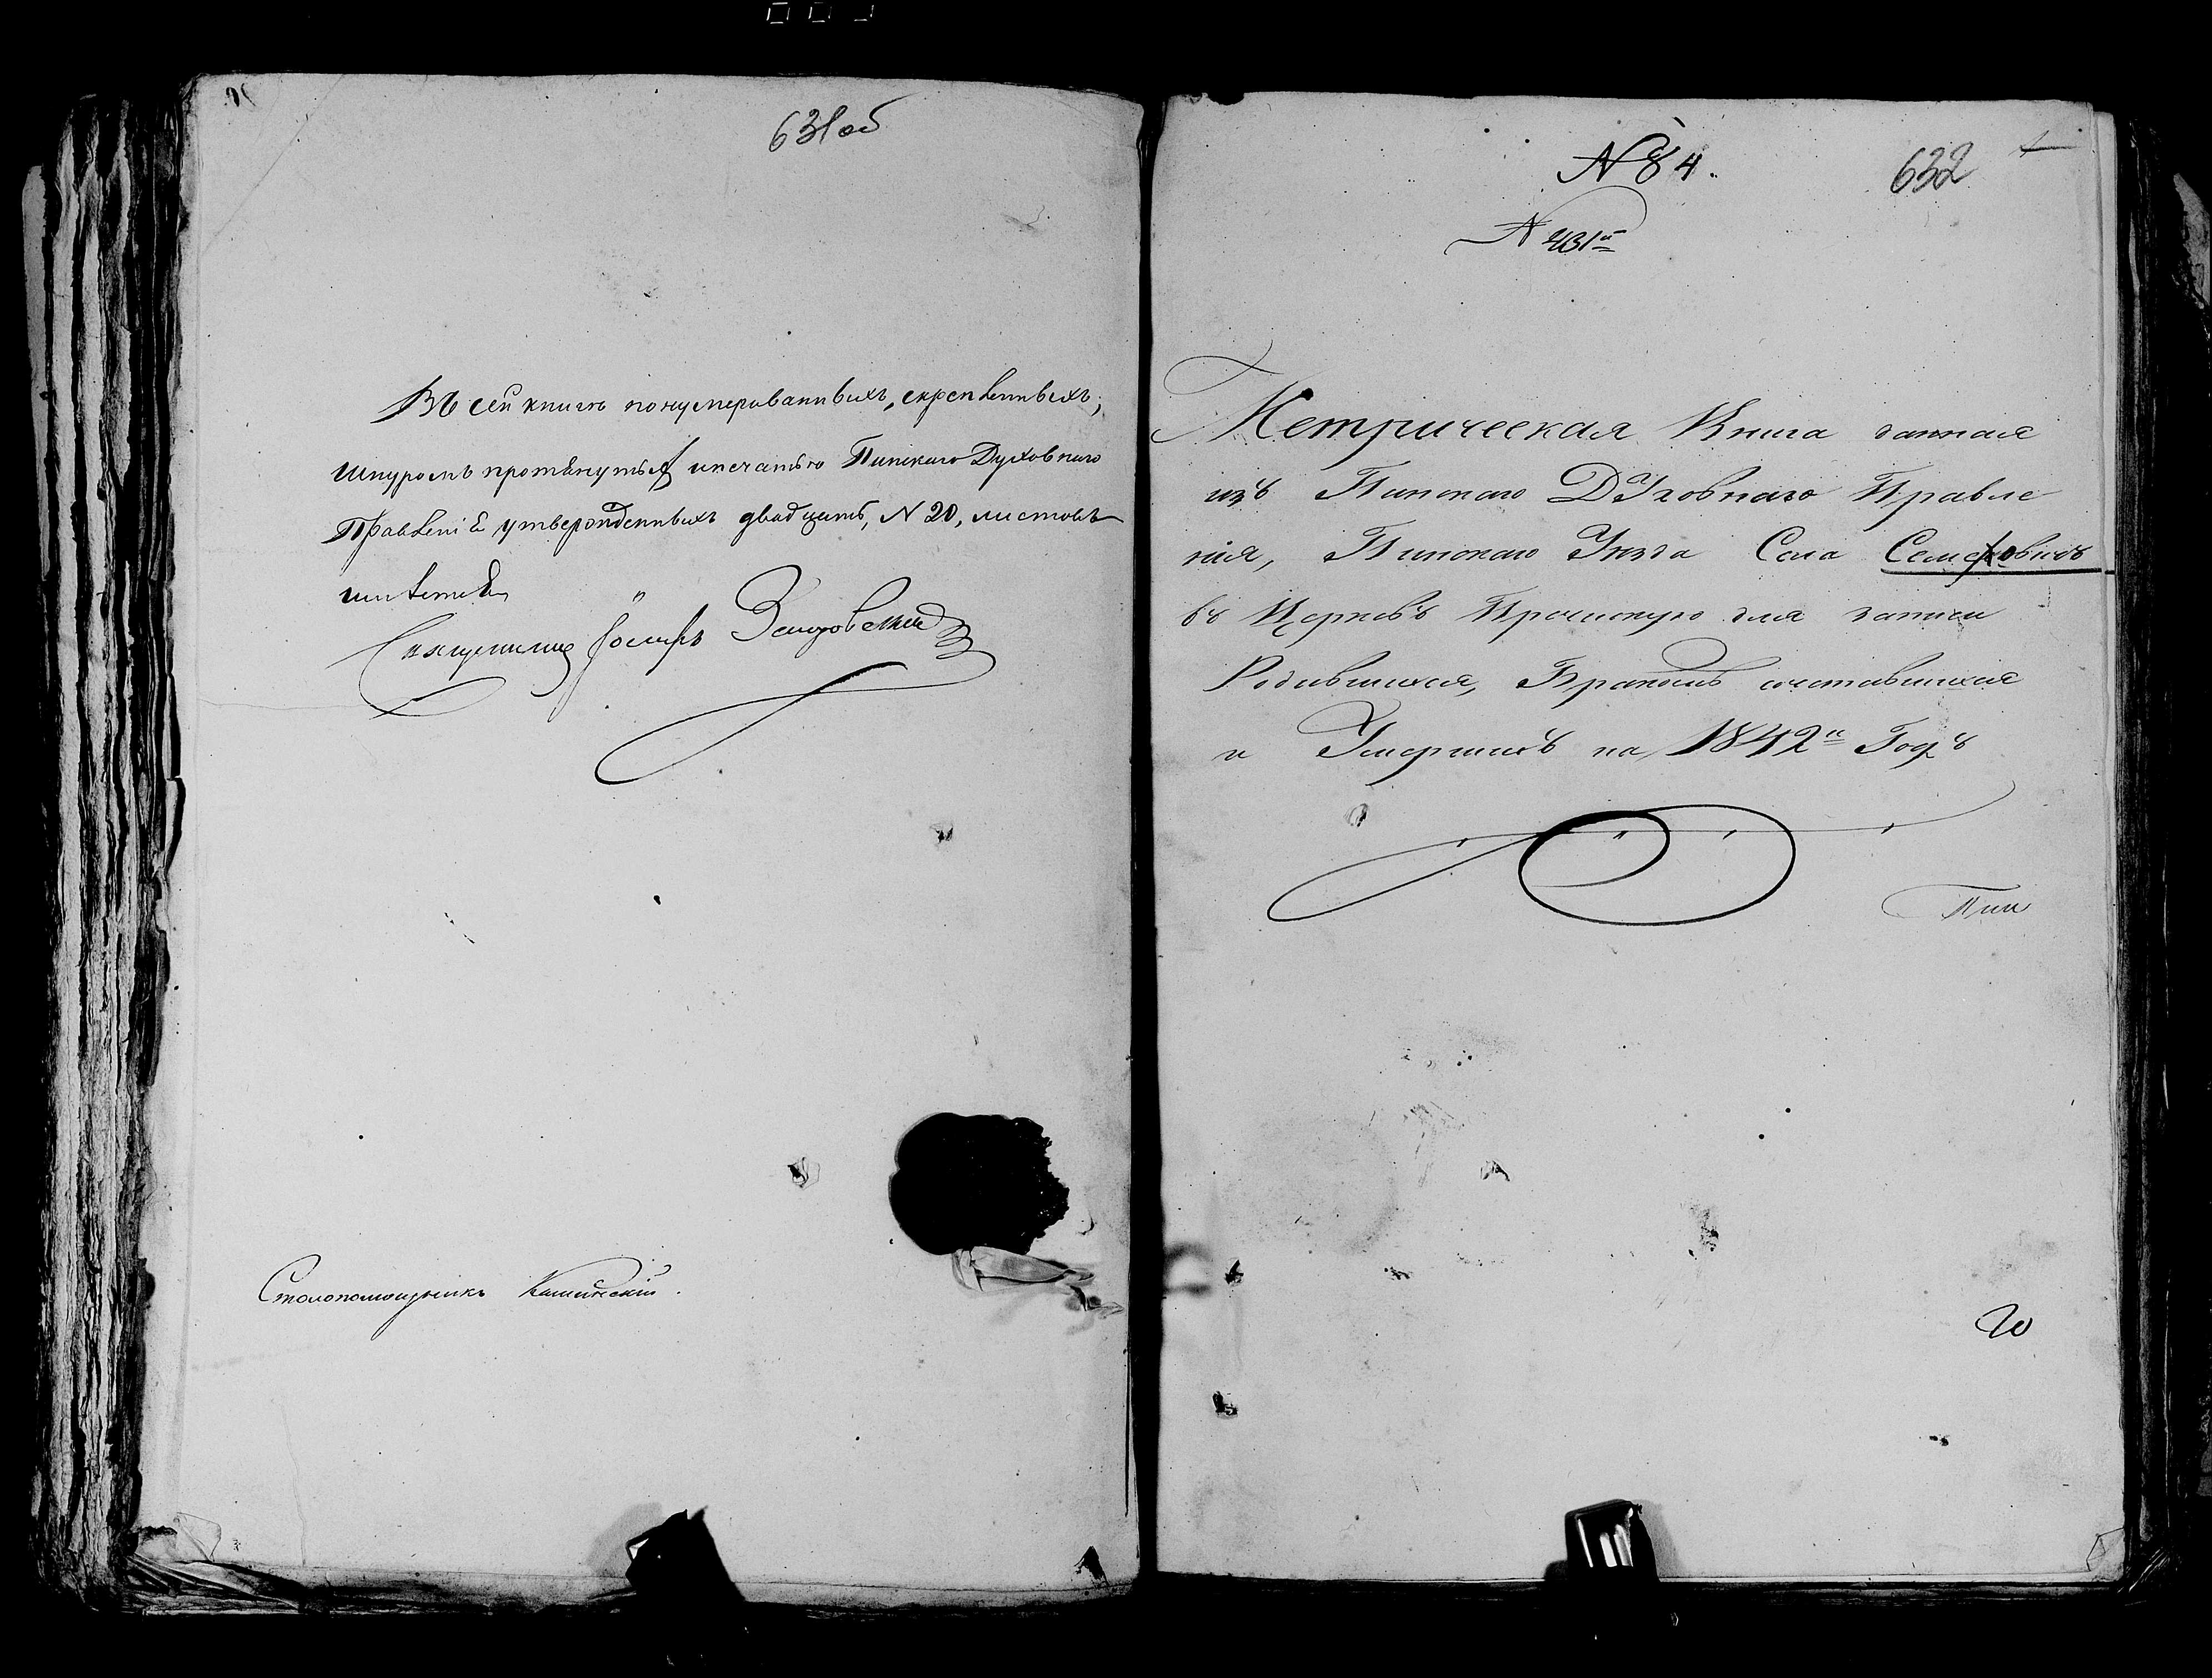 631об
Въ сей книгѣ понумерованныхъ, скрепленныхъ,
шнуромъ протянутыхъ и печатью Пинскаго Духовнаго
Правленія утвержденныхъ двадцать, N 20, листовъ
имѣется
Священникъ Іосифъ
Столопомощникъ
N 84.
632
1
N 431й
Метрическая Книга данная
изъ Пинскаго Духовнаго Правле
нія, Пинскаго Уѣзда Села Семеховичъ
въ Церковь Пречискую для записи
Родившихся, Бракомъ сочетавшихся
и Умершихъ на 1842й Годъ
Пин
20